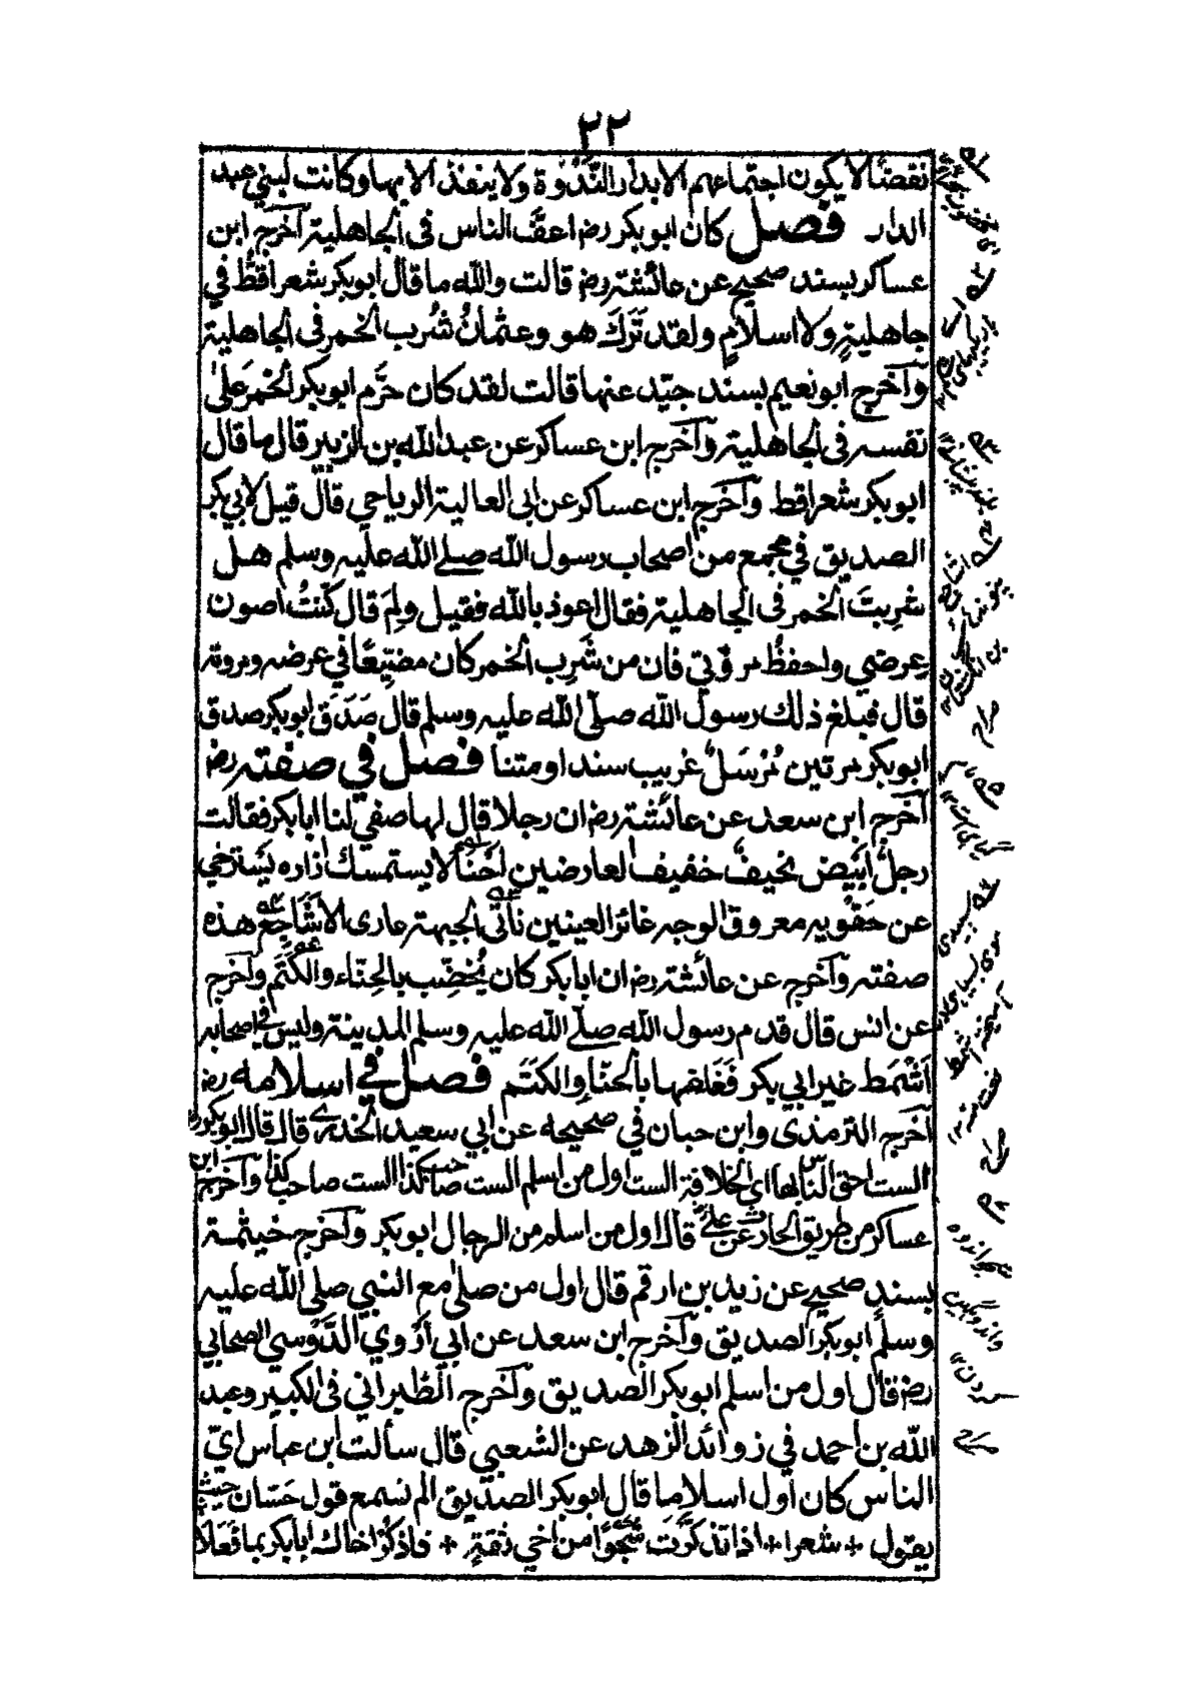 ٢٢
نقضًا لا يكون اجتماعهم الا بدار النَّدْوة ولا ينفذ الا بها وكانت لبني عبد
الدار فصل كان ابوبكر رض اعفّ الناس فى الجاهلية آخرج ابن
عساكر بسند صحيح عن عائشة رض قالت والله ما قال ابوبكر شعرا قطُّ في
جاهليةٍ ولا اسلامٍ ولقد تَرَكَ هو وعثمانُ شُرب الخمر فى الجاهلية
وآخرج ابو نعيم بسند جيّد عنها قالت لقد كان حرَّم ابوبكر الخمر على
نفسه فى الجاهلية وآخرج ابن عساكر عن عبد الله بن الزبير قال ما قال
ابوبكر شعرا قط وآخرج ابن عساكر عن ابى العالية الرياحي قال قيل لابي بكر
الصديق في مجمع من اصحاب رسول الله صلے الله عليه وسلم هل
شربتَ الخمر فى الجاهلية فقال اعوذ بالله فقيل ولِمَ قال كنتُ اصون
عِرضي واحفظُ مروّتي فان من شَرِب الخمر كان مضيّعًا في عرضه ومروته
قال فبلغ ذلك رسول الله صلّى الله عليه وسلم قال صَدَقَ ابوبكر صدق
ابوبكر مرتين مُرْسَلٌ غريب سندا ومتنا فصل في صفته رض
آخرج ابن سعد عن عائشة رض ان رجلا قال لها صفي لنا ابا بكر فقالت
رجلٌ ابيض نحيف خفيف العارضين اَحْنَأ لا يستمسك ازاره يسترخي
عن حَقْويه معروق الوجه غائر العينين ناتئ الجبهة عارى الاَشَاجع هذه
صفته وآخرج عن عائشة رض ان ابا بكر كان يُخضِّب بالحِنّاء والكَتَم وآخرج
عن انس قال قدم رسول الله صلّے الله عليه وسلم المدينة وليس في اصحابه
اَشْمَط غير ابي بكر فَغَلفها بالحنّاء والكتَم فصل في اسلامه رض
آخرج الترمذى وابن حبان في صحيحه عن ابي سعيد الخدرى قال قال ابو بكر
الست احق الناس بها اى الخلافة الست اول من اسلم الست صاحب كذا الست صاحب كذا وآخرج ابن
عساكر من طريق الحارث عن علي قال اول من اسلم من الرجال ابوبكر وآخرج خيثمة
بسند صحيح عن زيد بن ارقم قال اول من صلى مع النبي صلى الله عليه
وسلم ابوبكر الصديق وآخرج ابن سعد عن ابي اَرْوي الدَّوسي الصحابي
رض قال اول من اسلم ابوبكر الصديق وآخرج الطَّبراني فى الكبير وعبد
الله بن احمد في زوائد الزهد عن الشعبي قال سألت ابن عباس ايّ
الناس كان اول اسلاما قال ابوبكر الصديق الم تسمع قول حَسّان حيث
يقول + شعرا + اذا تذكرتَ شَجْوًا من اخي ثقةٍ + فاذكُرْ اخاك ابا بكر بما فَعَلَا